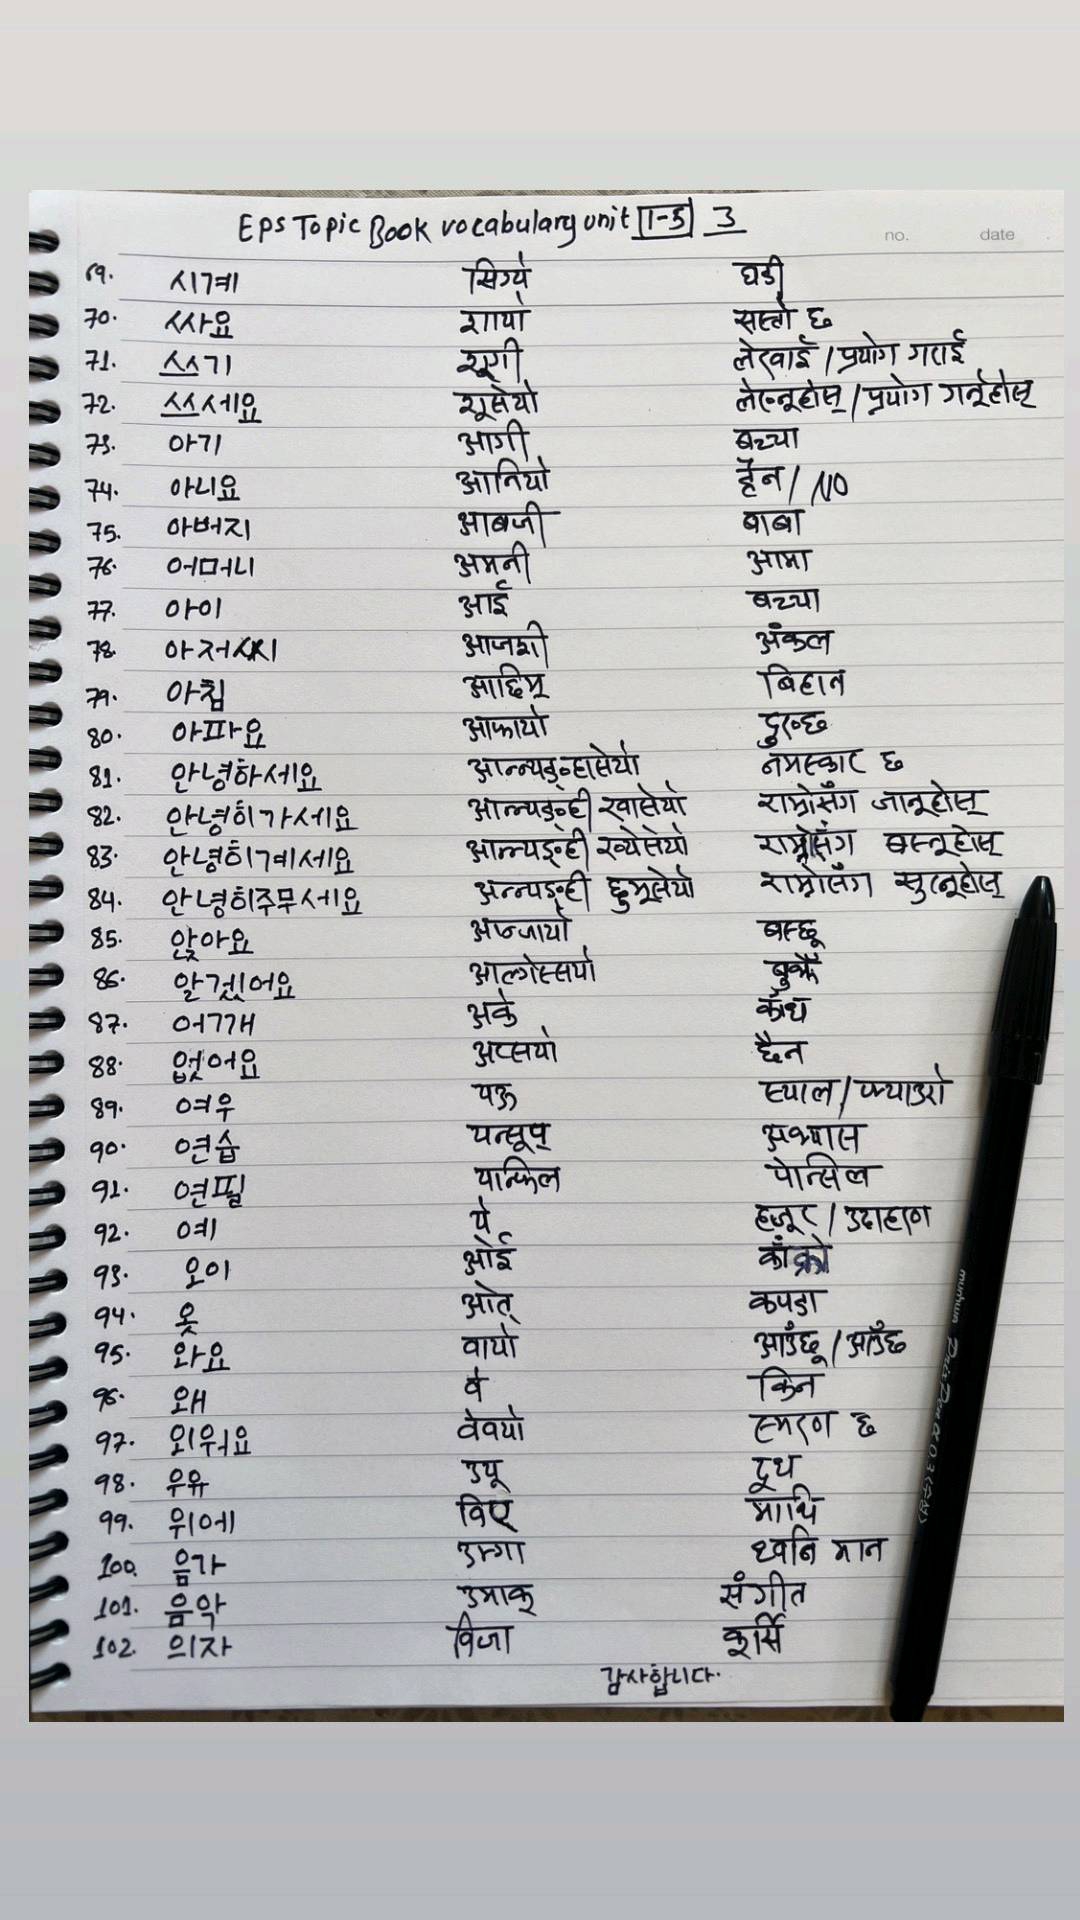 Eps Topic Book vocabulary unit 1-5 3
no. date
69. 시계 सिग्ये घडी
70. 싸요 शायो सस्तो छ
71. 쓰기 शूगी लेखाई / प्रयोग गराई
72. 쓰세요 शूसेयो लेख्नूहोस् / प्रयोग गर्नूहोस्
73. 아기 आगी बच्चा
74. 아니요 आनियो हैन / NO
75. 아버지 आबजी बाबा
76. 어머니 अमनी आमा
77. 아이 आई बच्चा
78. 아저씨 आजशी अंकल
79. 아침 आछिम् बिहान
80. 아파요 आफायो दुख्छ
81. 안녕하세요 आन्न्यङ्हासेयो नमस्कार छ
82. 안녕히가세요 आन्न्यङ्ही खासेयो राम्रोसँग जानूहोस्
83. 안녕히계세요 आन्न्यङ्ही ख्येसेयो राम्रोसँग बस्नूहोस्
84. 안녕히주무세요 अन्न्यङ्ही छुमूसेयो राम्रोसँग सुत्नूहोस्
85. 앉아요 अन्जायो बस्छू
86. 알겠어요 आल्गेस्सयो बुझेँ
87. 어깨 अके काँध
88. 없어요 अप्सयो छैन
89. 여우 यऊ स्याल / फ्याउरो
90. 연습 यन्सूप् अभ्यास
91. 연필 यान्फिल पेन्सिल
92. 예 ये हजूर / उदाहरण
93. 오이 ओई काँक्रो
94. 옷 ओत् कपडा
95. 와요 वायो आउँछू / आउँछ
96. 왜 वे किन
97. 외워요 वेवयो स्मरण छ
98. 우유 उयू दूध
99. 위에 विए माथि
100. 음가 उम्गा ध्वनि मान
101. 음악 उमाक् संगीत
102. 의자 विजा कूर्सि
감사합니다.
munhwa